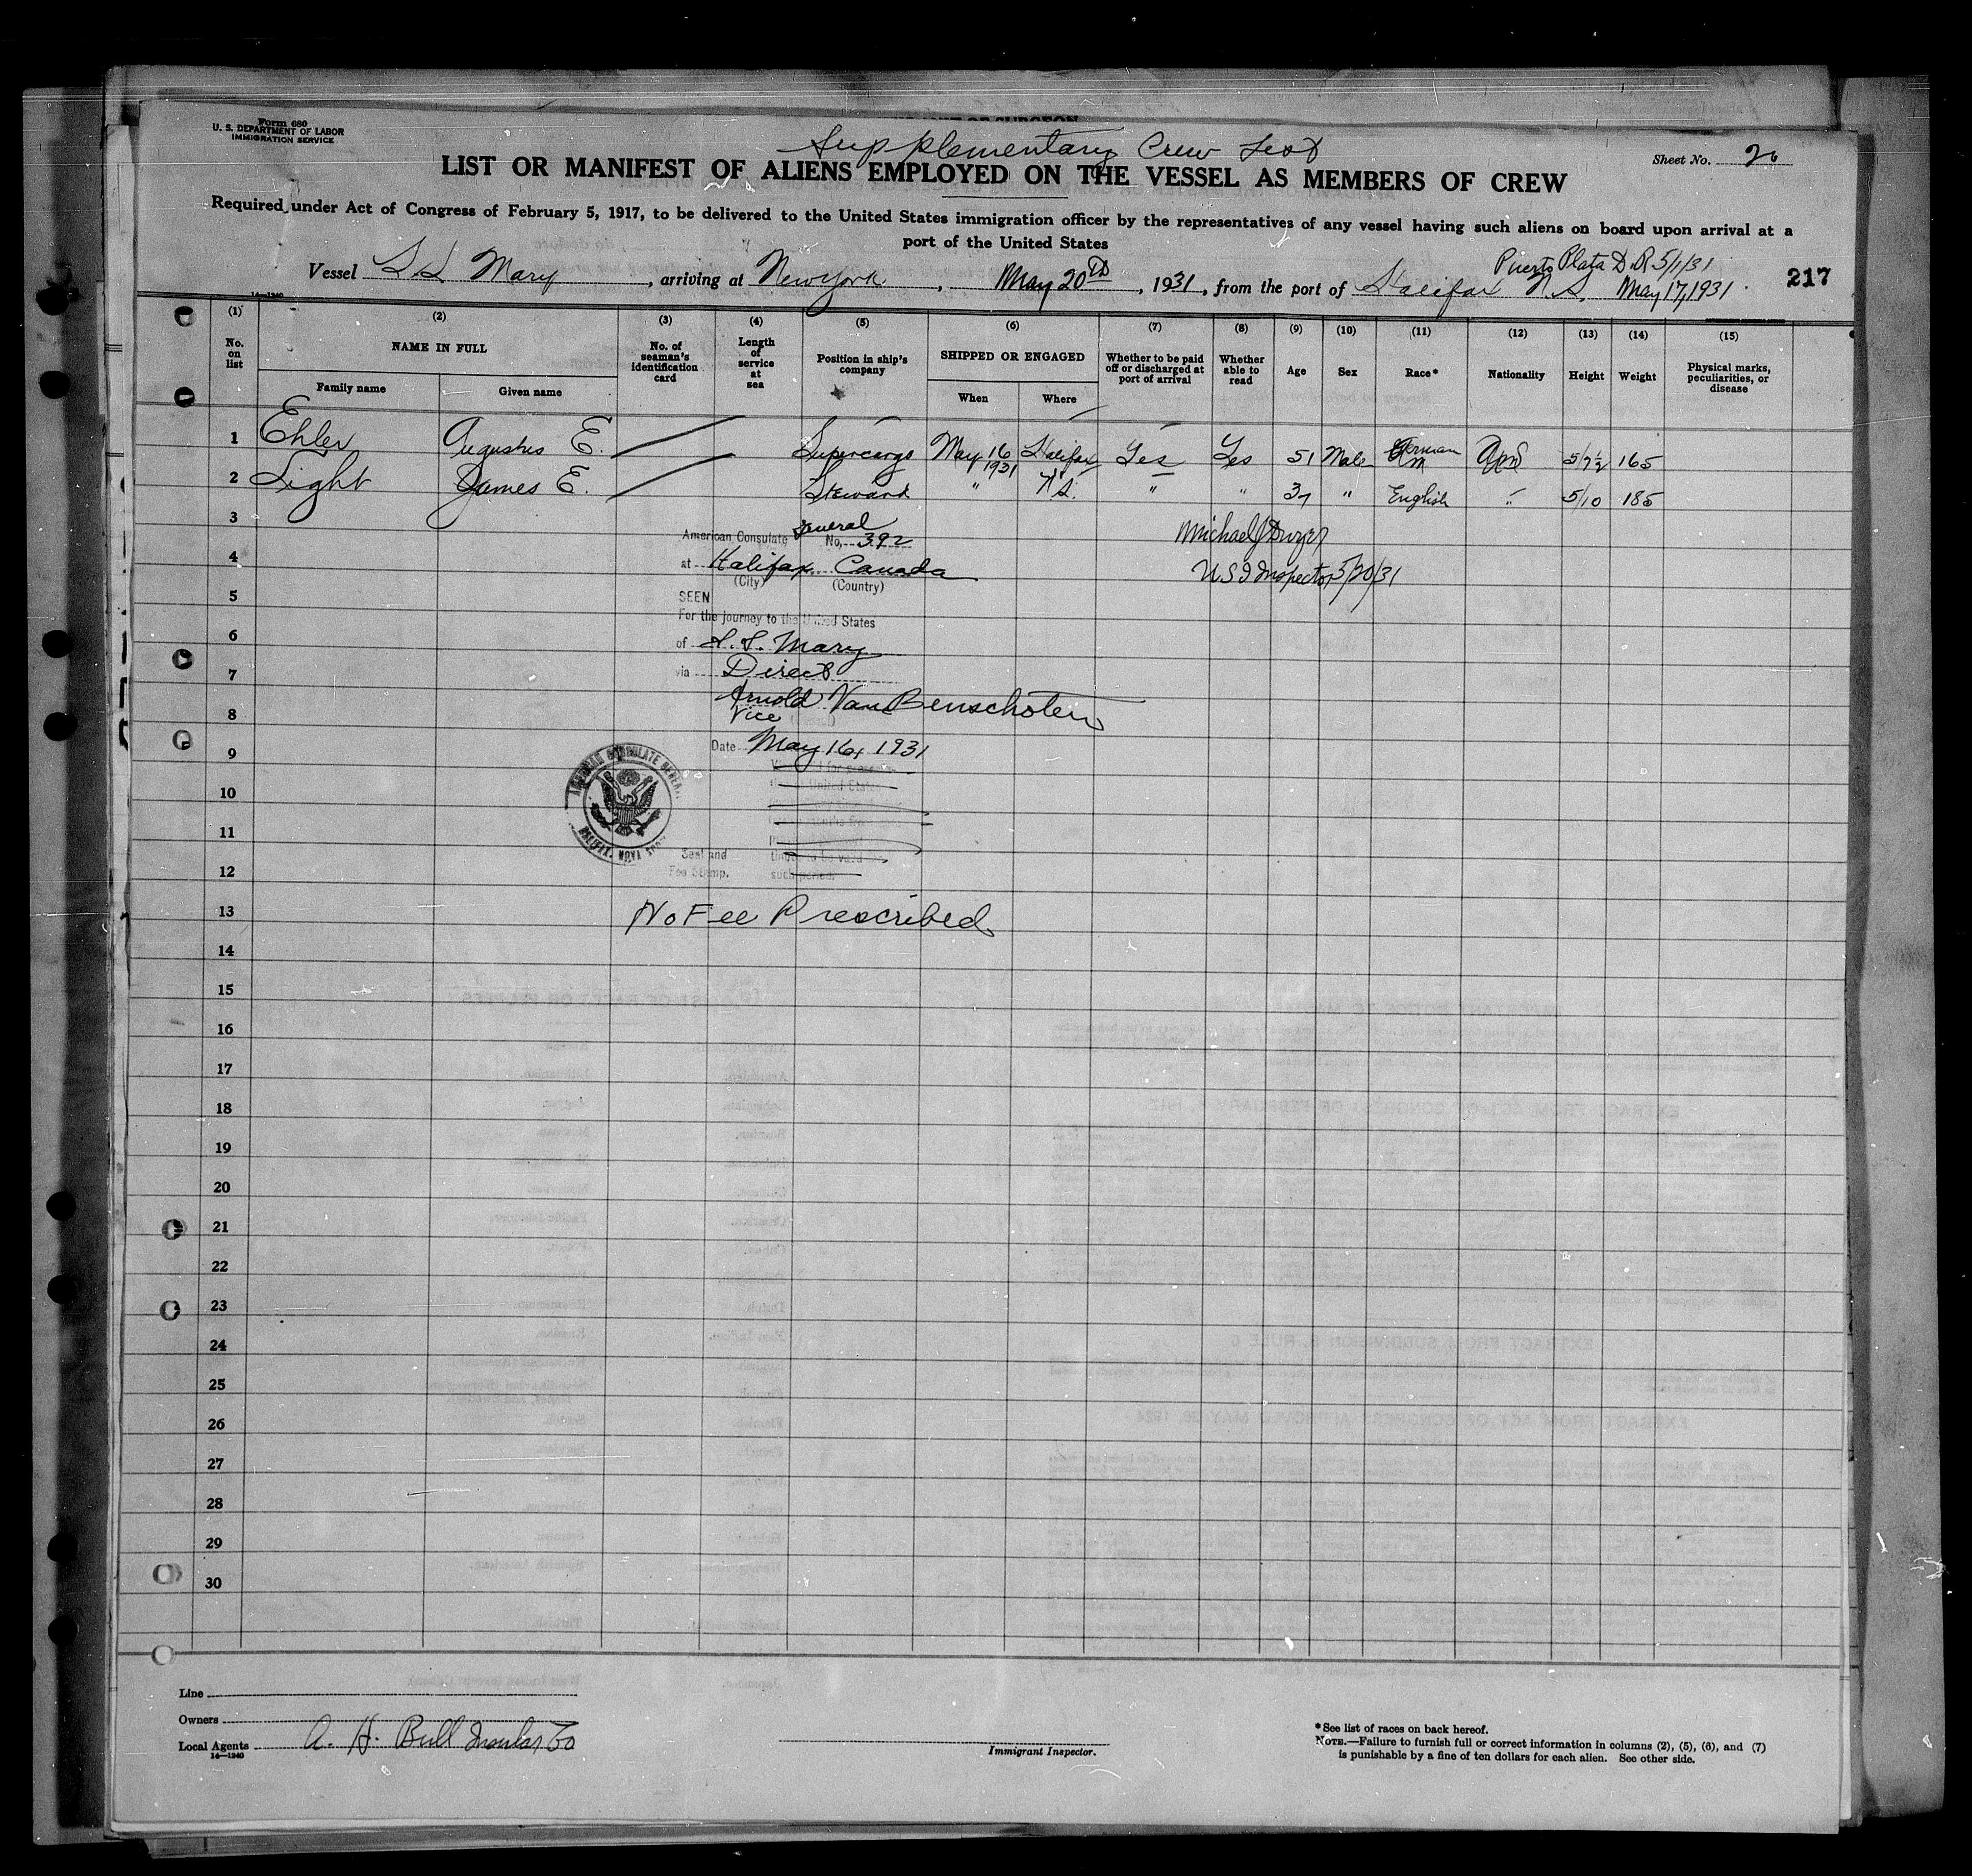 Form 680
U. S. DEPARTMENT OF LABOR
IMMIGRATION SERVICE
Supplementary Crew List
Sheet No. 26
LIST OR MANIFEST OF ALIENS EMPLOYED ON THE VESSEL AS MEMBERS OF CREW
Required under Act of Congress of February 5, 1917, to be delivered to the United States immigration officer by the representatives of any vessel having such aliens on board upon arrival at a
port of the United States
Puerto Plata D.R 5/1/31
Vessel S.S Mary, arriving at New York, May 20th, 1931, from the port of Halifax N.S. May 17, 1931.
217
14—1240
(1) (2) (3) (4) (5) (6) (7) (8) (9) (10) (11) (12) (13) (14) (15)
No. on list NAME IN FULL No. of seaman's identification card Length of service at sea Position in ship's company SHIPPED OR ENGAGED Whether to be paid off or discharged at port of arrival Whether able to read Age Sex Race* Nationality Height Weight Physical marks, peculiarities, or disease
Family name Given name When Where
1 Ehler Augustus E. Supercargo May 16 1931 Halifax Yes Yes 51 Male German 5/7½ 165
2 Light James E. Steward " N.S. " " 37 " English " 5/10 185
3
General
American Consulate No. 392
Michael J Dwyer
4
at Halifax Canada
(City) (Country)
U S I Inspector 5/20/31
5
SEEN
For the journey to the United States
6
of S.S. Mary
7
via Direct
Arnold Van Benschoten
8
Vice
Date May 16, 1931
9
AMERICAN CONSULATE GENERAL
HALIFAX, NOVA SCOTIA
10
11
Seal and
Fee Stamp.
such period.
12
13
No Fee Prescribed
14
15
16
17
18
19
20
21
22
23
24
25
26
27
28
29
30
Line
Owners
Local Agents A. H. Bull Insular Co
14—1240
Immigrant Inspector.
*See list of races on back hereof.
NOTE.—Failure to furnish full or correct information in columns (2), (5), (6), and (7)
is punishable by a fine of ten dollars for each alien. See other side.